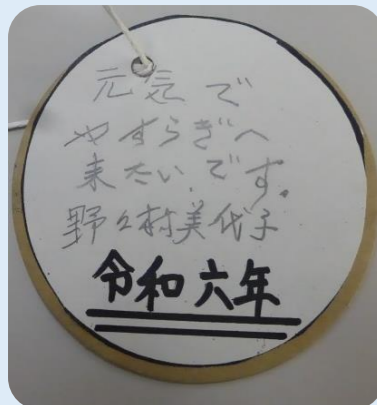 元気で
やすらぎへ
来たいです。
野々村美代子
令和六年